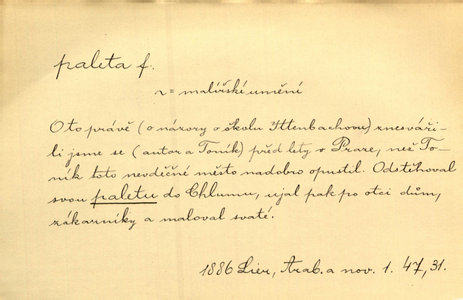 paleta f.
r = malířské umění
O to právě (o názory o školu Ittenbachovu) znesváři-
li jsme se (autor a Toník) před lety v Praze, než To-
ník toto nevděčné město nadobro opustil. Odstěhoval
svou paletu do Chlumu, ujal pak po otci dům,
zákazníky a maloval svaté.
1886 Lier, Arab. a nov. 1. 47, 31.